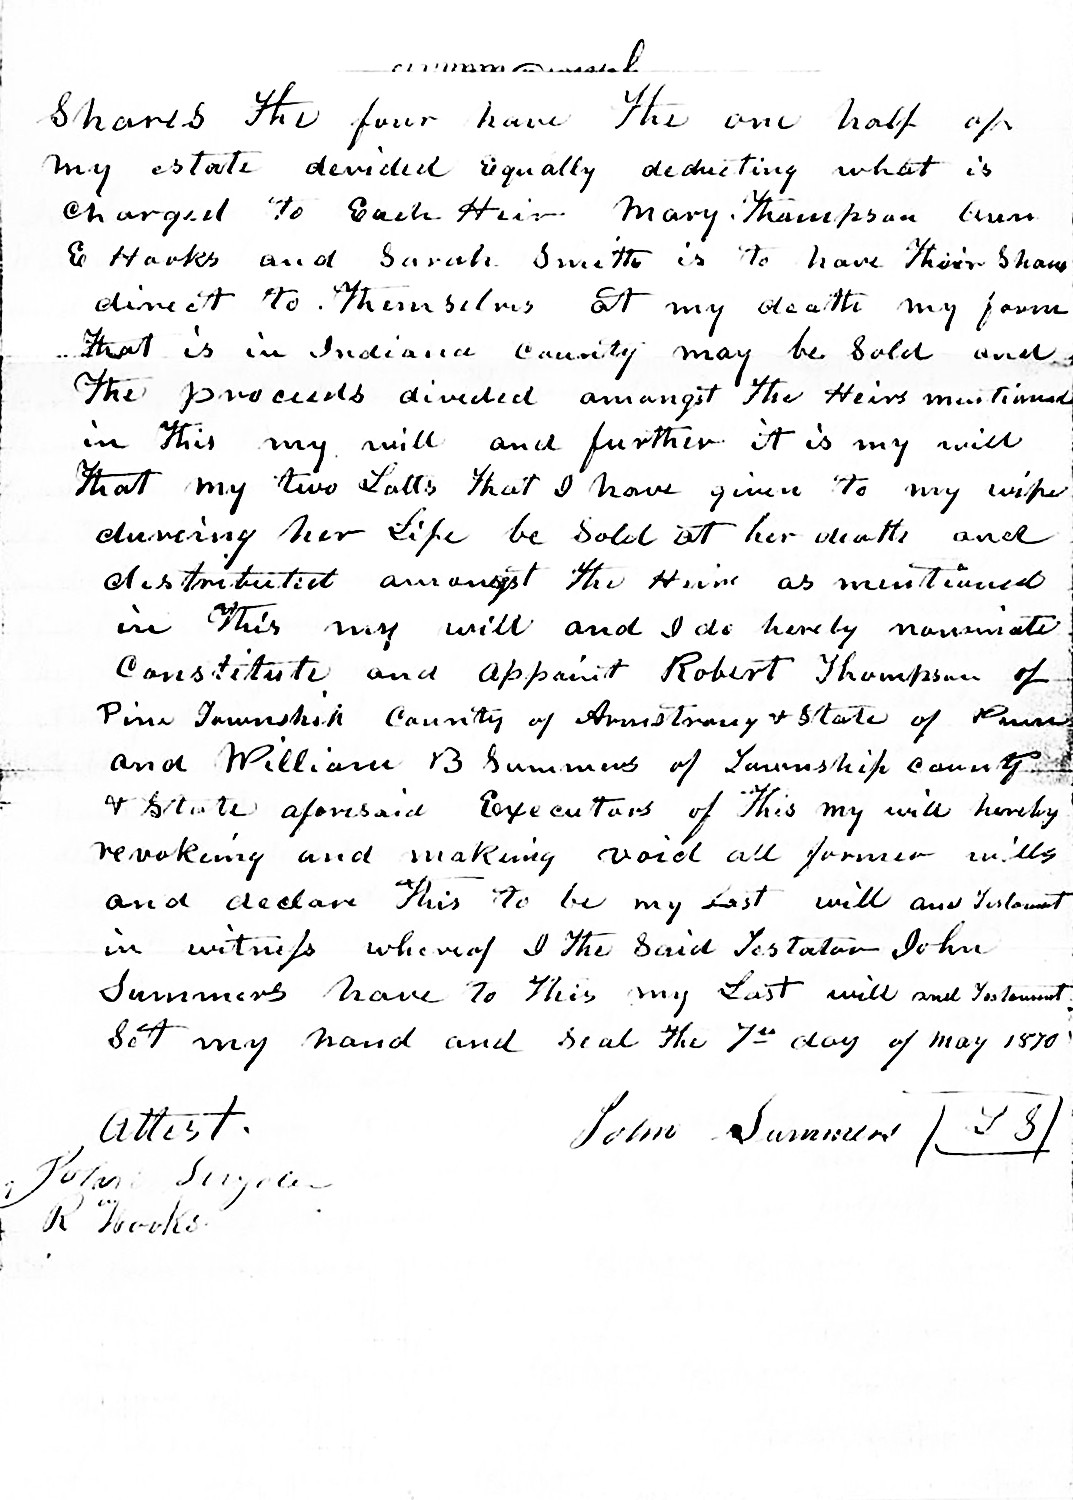 Shares the four have the one half of
my estate devided Equally deducting what is
charged to Each Heir Mary Thompson Ann
E Hooks and Sarah Smith is to have their Share
direct to themselves at my death my farm
that is in Indiana county may be Sold and
the proceeds divided amongst the Heirs mentioned
in this my will and further it is my will
that my two Lotts that I have given to my wife
dureing her Life be Sold at her death and
distributed amongst the Heirs as mentioned
in this my will and I do hereby nominate
Constitute and appoint Robert Thompson of
Pine Township County of Armstrong & State of Penn
and William B Summers of Township county
& State aforesaid Executors of this my will hereby
revokeing and makeing void all former wills
and declare this to be my Last will and Testament
in witness whereof I the Said Testator John
Summers have to this my Last will and Testament
Set my hand and Seal the 7th day of may 1870
Attest. John Summers L S
John
R Hooks